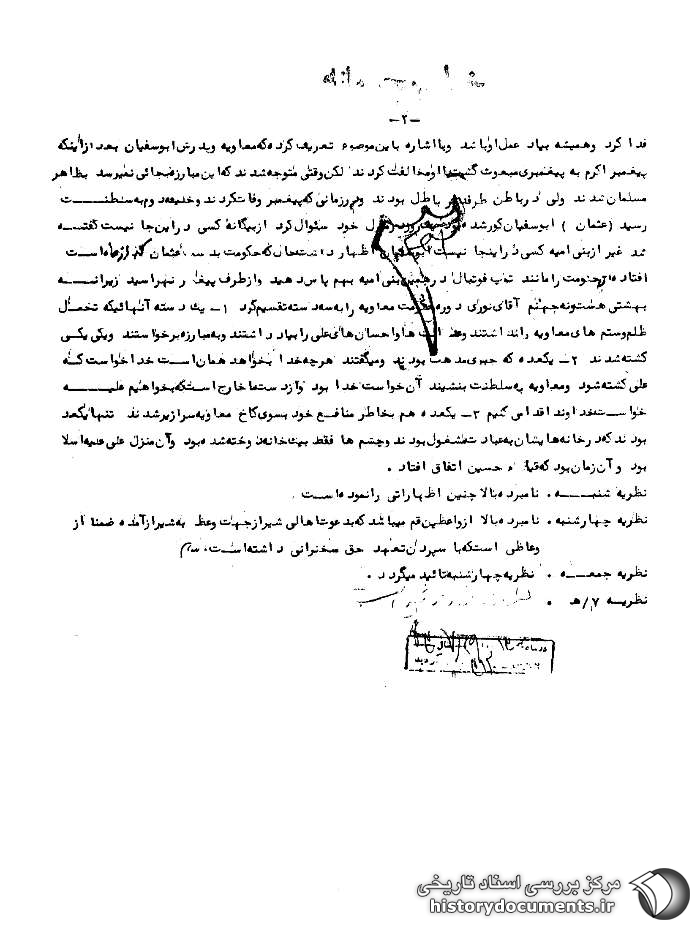 -۲-
فدا کرد وهمیشه بیاد عمل اوباشد وبا اشاره باین موضوع تعریف کرده که معاویه وپدرش ابوسفیان بعد ازاینکه
پیغمبر اکرم به پیغمبری مبعوث گشت با او مخالفت کردند لکن وقتی متوجه شدند که این مبارزه بجائی نمیرسد بظاهر
مسلمان شدند ولی درباطن طرفدار باطل بودند وهم زمانی که پیغمبر وفات کردند وخلیفه دوم به سلطنت
رسید (عثمان ) ابوسفیان کور شده بود منزل خود سئوال کرد ازبیگانه کسی دراین جا نیست گفته
شد غیر ازبنی امیه کسی دراینجا نیست ابوسفیان اظهار داشت حال که حکومت بدست عثمان
افتاده این حکومت را مانند توپ فوتبال درزمین بنی امیه بهم پاس دهید وازطرف پیغمبر نهراسید زیرانه
بهشتی هست ونه جهنم آقای نوری دوره حکومت معاویه را به سه دسته تقسیم کرد ۱- یک دسته آنهائیکه تحمل
ظلم وستم های معاویه را نداشتند وعدالت ها واحسان های علی را بیاد داشتند وبه مبارزه برخواستند ویکی یکی
کشته شدند ۲- یکعده که جبری مذهب بودند ومیگفتند هرچه خدا بخواهد همان است خدا خواست که
علی کشته شود ومعاویه به سلطنت بنشیند آن خواست خدا بود وازدست ما خارج است که بخواهیم علیه
خواست خداوند اقدامی کنیم ۳- یکعده هم بخاطر منافع خود بسوی کاخ معاویه سرازیر شدند تنها یکعد
بودند که درخانه هایشان به عبادت مشغول بودند وچشم ها فقط بیک خانه دوخته شده بود وآن منزل علی علیه اسلا
بود وآن زمان بود که قیام حسین اتفاق افتاد .
نظریه شنبه . نامبرده بالا چنین اظهاراتی را نموده است .
نظریه چهارشنبه . نامبرده بالا ازواعظین قم میباشد که بدعوت اهالی شیراز جهت وعظ به شیراز آمده ضمنا از
وعاظی است که با سپردن تعهد حق سخنرانی داشته است.
نظریه جمعه . نظریه چهارشنبه تائید میگردد .
نظریه ۷/ه .
مرکز بررسی اسناد تاریخی
historydocuments.ir